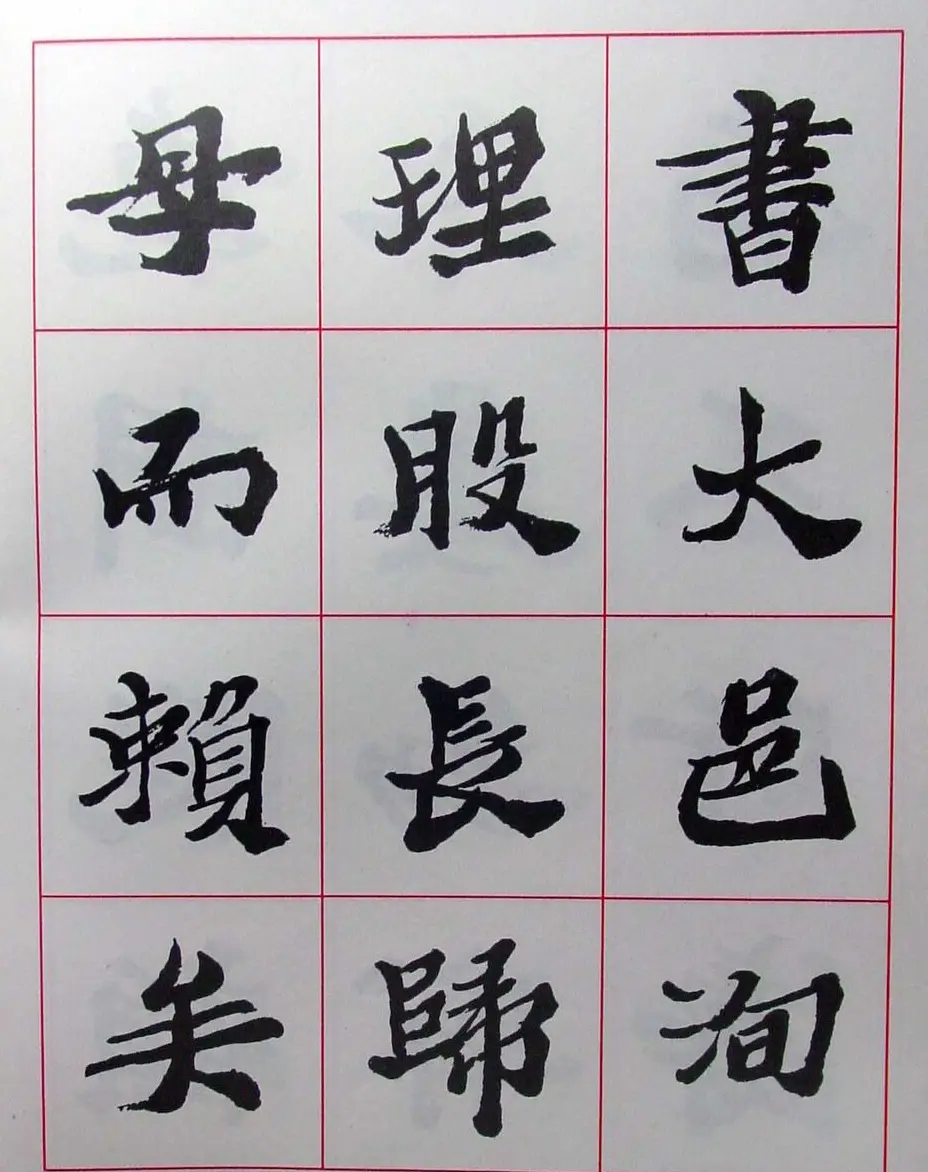 書大邑洵
理股長歸
母而賴矣